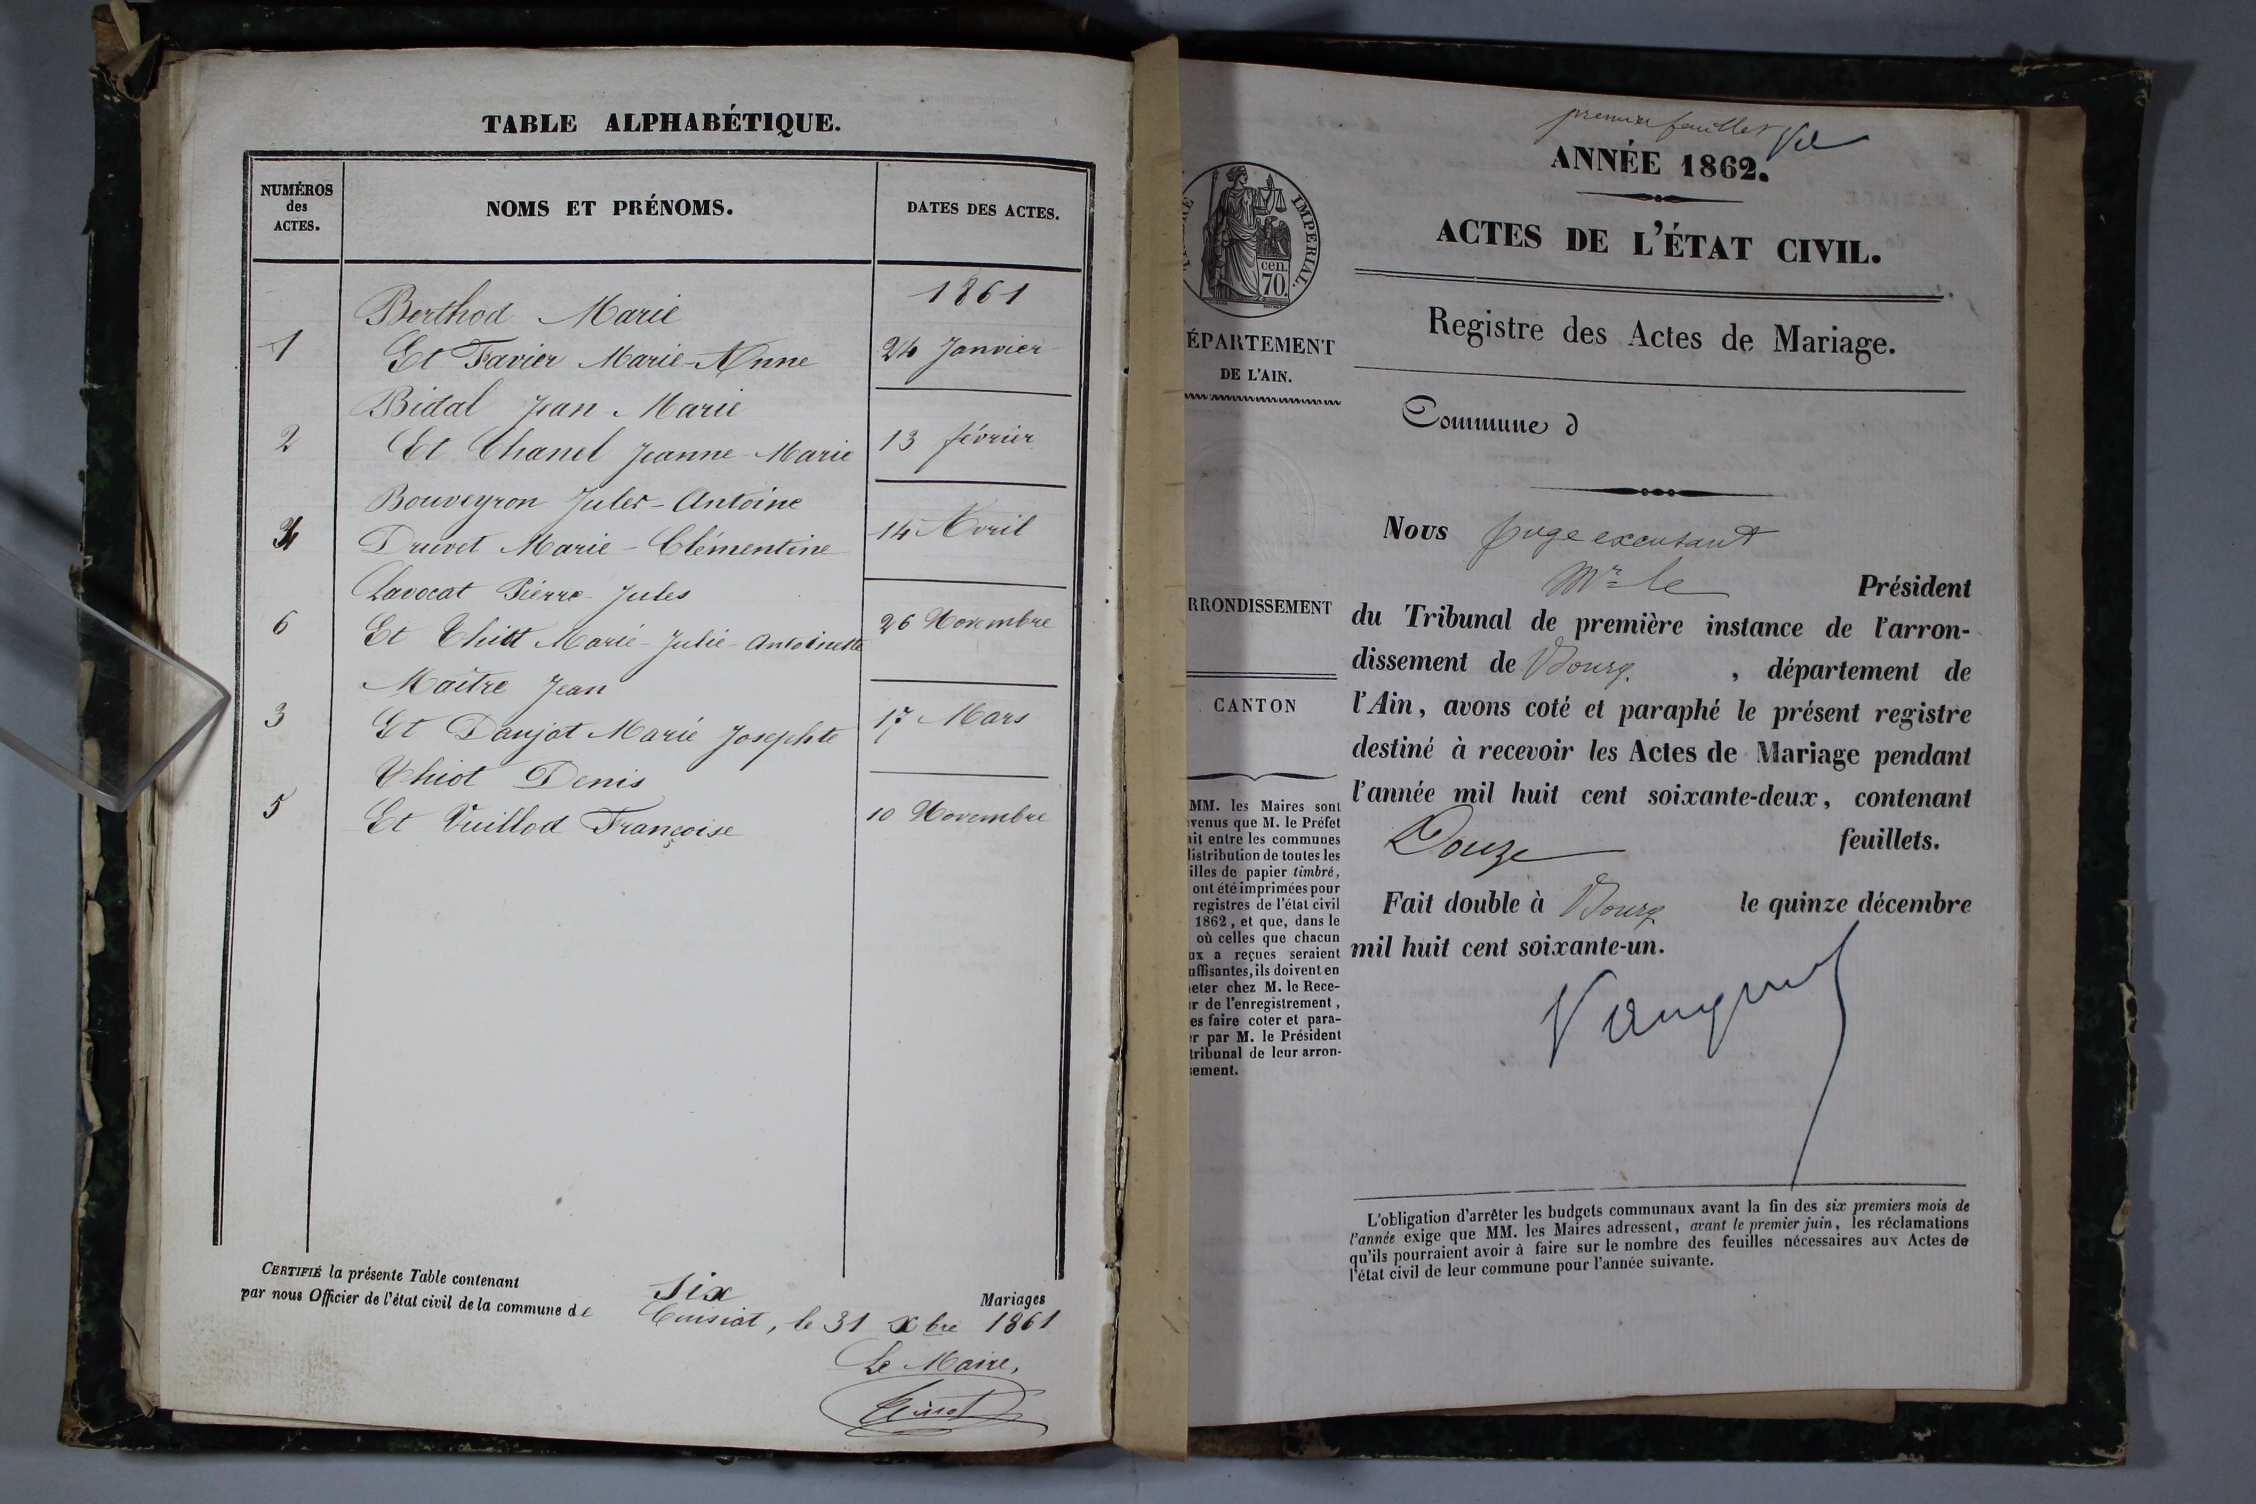 TABLE ALPHABÉTIQUE.
NUMÉROS
des
ACTES.
NOMS ET PRÉNOMS.
DATES DES ACTES.
1861
Berthod Marie
1 Et Favier Marie-Anne 24 Janvier
Bidal Jean Marie
2 Et Chanel Jeanne-Marie 13 février
Bouveyron Jules-Antoine
4 Druvet Marie-Clémentine 14 Avril
Lavocat Pierre-Jules
6 Et Thiot Marie-Julie-Antoinette 26 Novembre
Maître Jean
3 Et Daujat Marie Josephte 17 Mars
Thiot Denis
5 Et Vuillod Françoise 10 Novembre
CERTIFIÉ la présente Table contenant Six Mariages
par nous Officier de l'état civil de la commune de Cuisiat, le 31 Xbre 1861
Le Maire,
premier feuillet
ANNÉE 1862.
ACTES DE L'ÉTAT CIVIL.
Registre des Actes de Mariage.
Commune d
IMPERIAL.
cen.
70.
ÉPARTEMENT
DE L'AIN.
RRONDISSEMENT
CANTON
MM. les Maires sont
venus que M. le Préfet
ait entre les communes
distribution de toutes les
illes de papier timbré,
ont été imprimées pour
registres de l'état civil
1862, et que, dans le
où celles que chacun
ux a reçues seraient
uffisantes, ils doivent en
eter chez M. le Rece-
r de l'enregistrement,
es faire coter et para-
r par M. le Président
tribunal de leur arron-
sement.
Nous Juge excusant
Mr le Président
du Tribunal de première instance de l'arron-
dissement de Bourg, département de
l'Ain, avons coté et paraphé le présent registre
destiné à recevoir les Actes de Mariage pendant
l'année mil huit cent soixante-deux, contenant
Douze feuillets.
Fait double à Bourg le quinze décembre
mil huit cent soixante-un.
L'obligation d'arrêter les budgets communaux avant la fin des six premiers mois de
l'année exige que MM. les Maires adressent, avant le premier juin, les réclamations
qu'ils pourraient avoir à faire sur le nombre des feuilles nécessaires aux Actes de
l'état civil de leur commune pour l'année suivante.